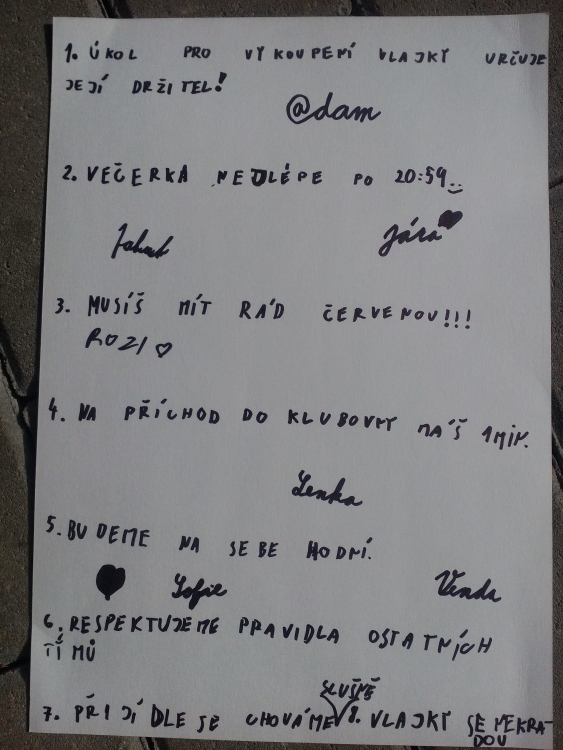 1. ÚKOL PRO VYKOUPENÍ VLAJKY URČUJE
JEJÍ DRŽITEL!
@dam
2. VEČERKA NEJLÉPE PO 20:59
Jakub Jára
3. MUSÍŠ MÍT RÁD ČERVENOU!!!
ROZI
4. NA PŘÍCHOD DO KLUBOVNY MÁŠ 1MIN.
Lenka
5. BUDEME NA SEBE HODNÍ.
Sofie Venda
6. RESPEKTUJEME PRAVIDLA OSTATNÍCH
TÍMŮ
SLUŠNĚ
7. PŘI JÍDLE SE CHOVÁME 8. VLAJKY SE NEKRA-
DOU